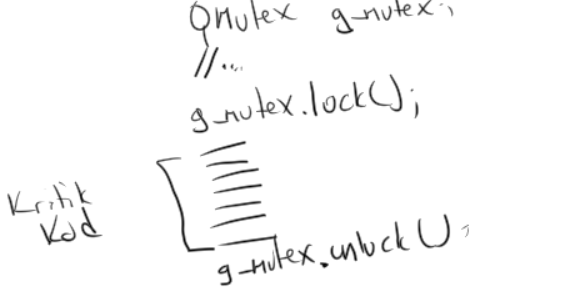 QMutex g_mutex;
//...
g_mutex.lock();
Kritik
Kod
g_mutex.unlock();